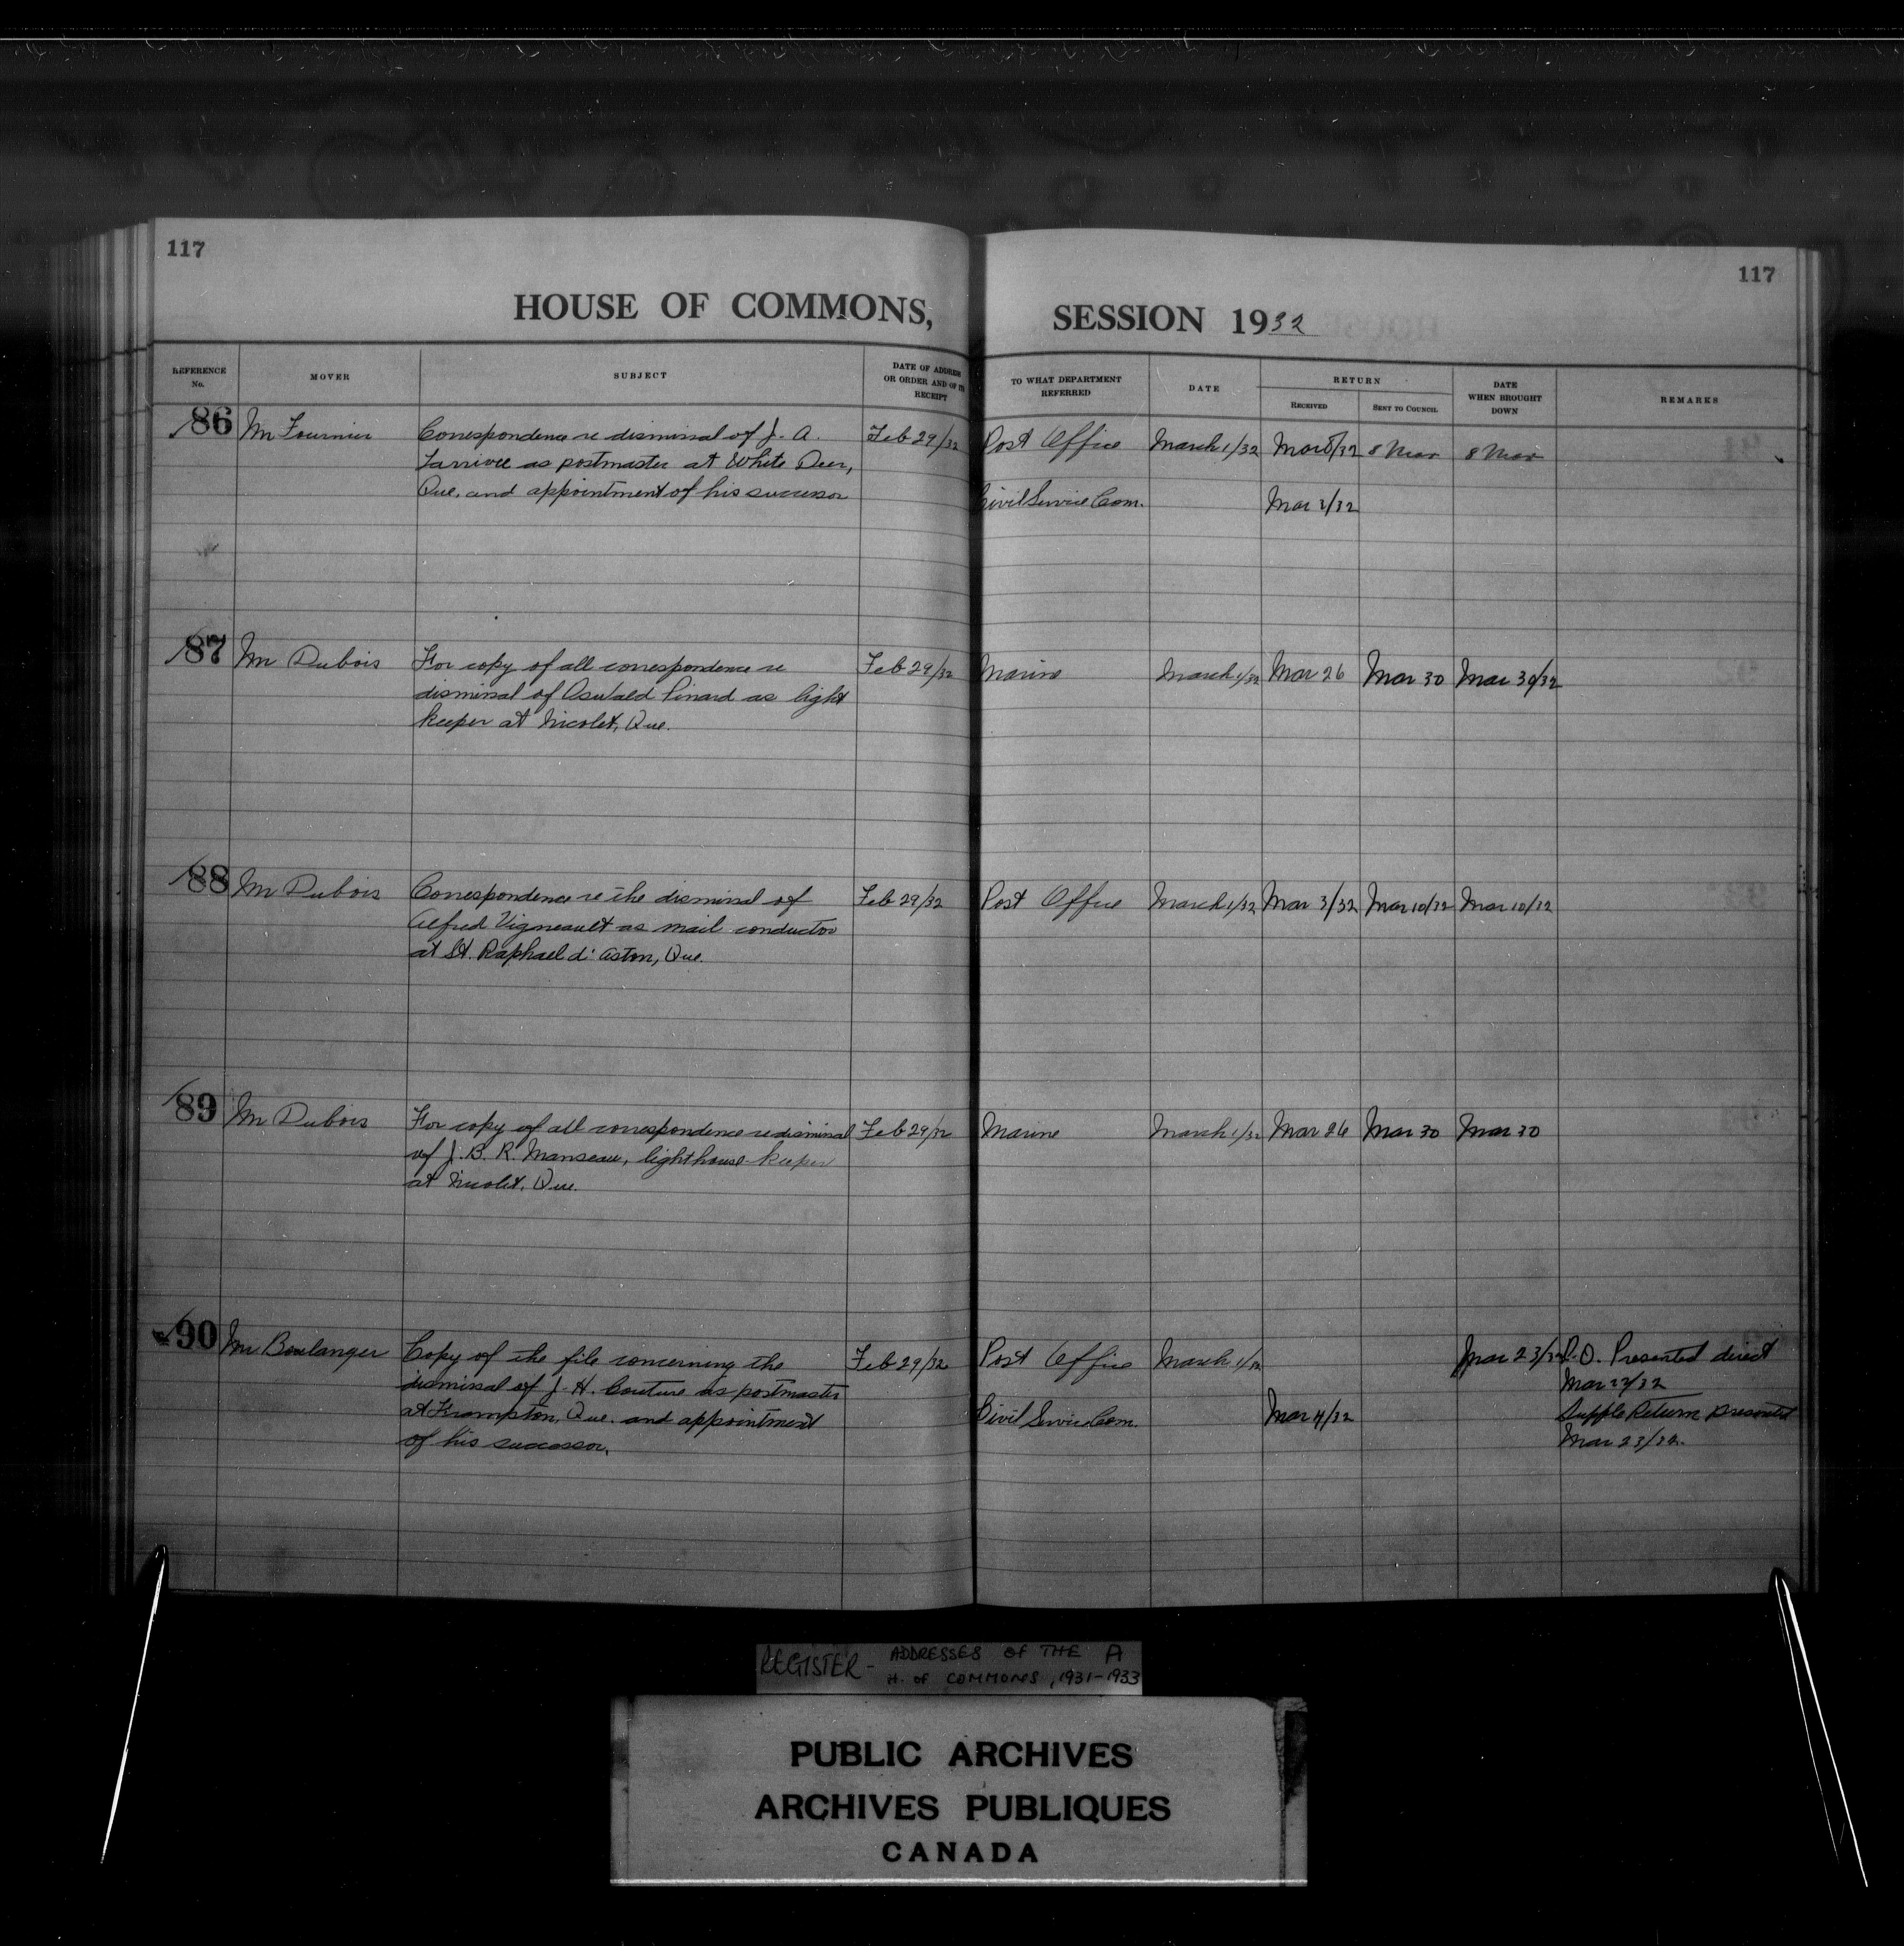 117
117
HOUSE OF COMMONS,
SESSION 1932
REFERENCE No.
MOVER
SUBJECT
DATE OF ADDRESS OR ORDER AND OF ITS RECEIPT
TO WHAT DEPARTMENT REFERRED
DATE
RETURN
RECEIVED
SENT TO COUNCIL
DATE WHEN BROUGHT DOWN
REMARKS
86 Mr Fournier Correspondence re dismissal of J. A. Feb 29/32 Post Office March 1/32 Mar 8/32 8 Mar 8 Mar
Larrivee as postmaster at White Deer,
Que. and appointment of his successor Civil Service Com. Mar 2/32
87 Mr Dubois For copy of all correspondence re Feb 29/32 Marine March 1/32 Mar 26 Mar 30 Mar 30/32
dismissal of Oswald Pinard as light
keeper at Nicolet, Que.
88 Mr Dubois Correspondence re the dismissal of Feb 29/32 Post Office March 1/32 Mar 3/32 Mar 10/32 Mar 10/32
Alfred Vigneault as mail conductor
at St. Raphael d'Aston, Que.
89 Mr Dubois For copy of all correspondence re dismissal Feb 29/32 Marine March 1/32 Mar 26 Mar 30 Mar 30
of J. B. R. Manseau, lighthouse keeper
at Nicolet, Que.
90 Mr Boulanger Copy of the file concerning the Feb 29/32 Post Office March 1/32 Mar 23/32 P.O. Presented direct
dismissal of J-H. Couture as postmaster Mar 22/32
at Frampton, Que. and appointment Civil Service Com. Mar 4/32 Supple Return presented
of his successor. Mar 23/32.
REGISTER - ADDRESSES OF THE A
H. of COMMONS, 1931-1933
PUBLIC ARCHIVES
ARCHIVES PUBLIQUES
CANADA